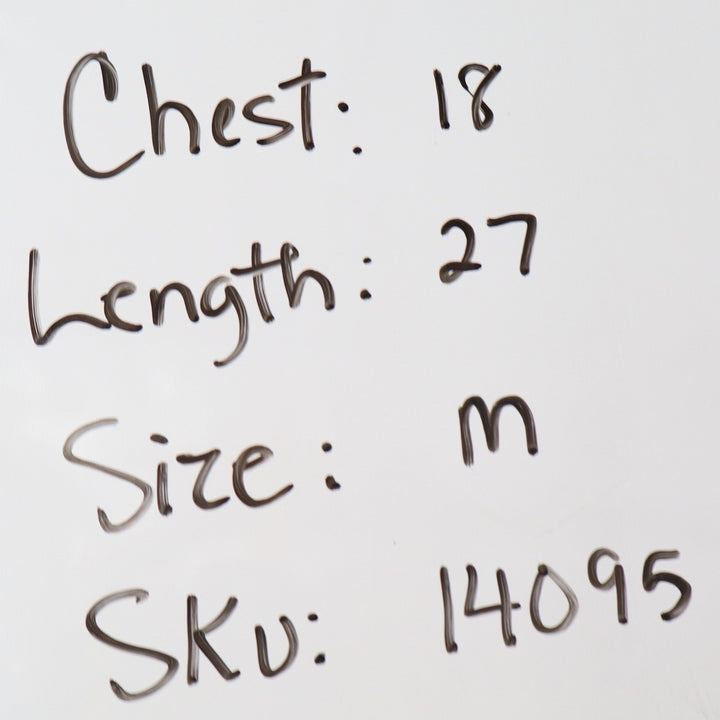 Chest: 18
Length: 27
Size: M
SKU: 14095